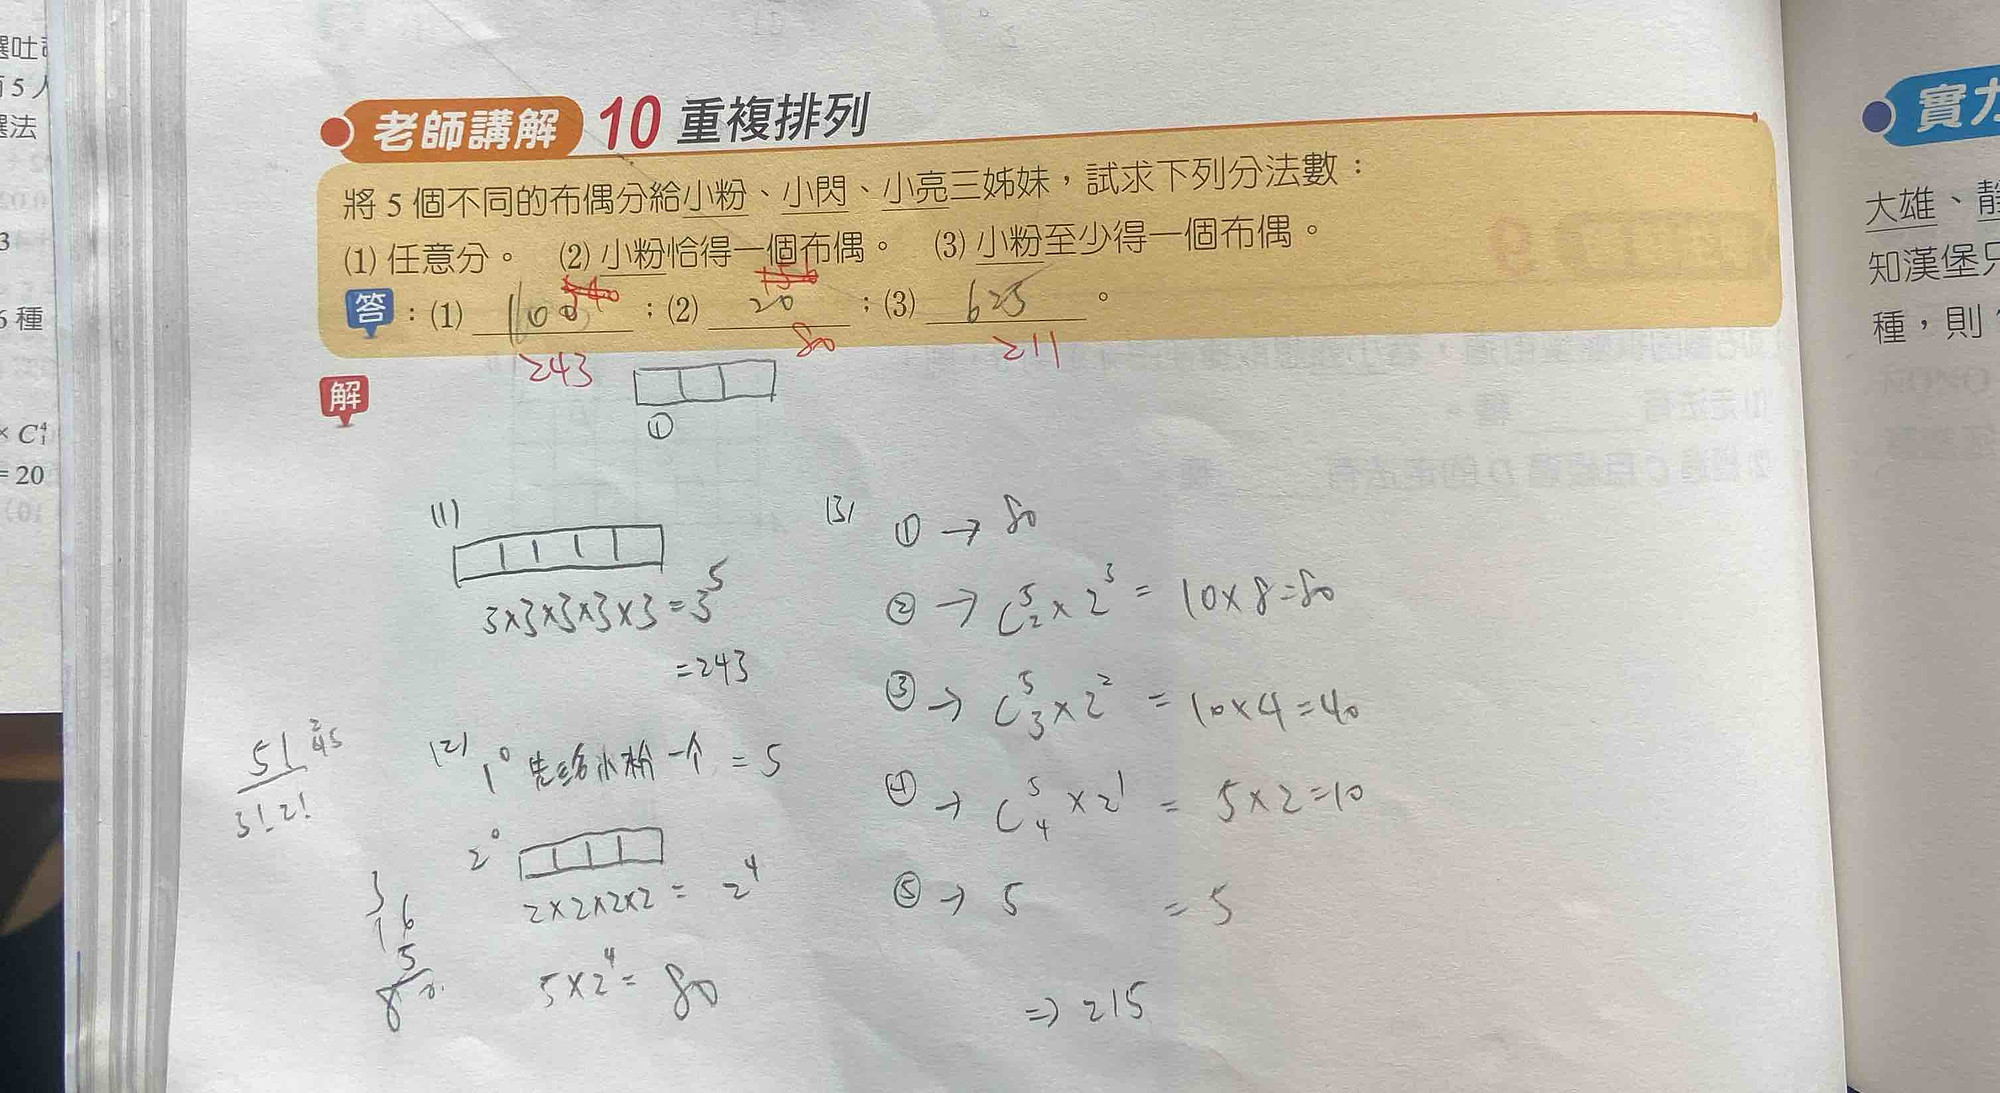 老師講解 10 重複排列
將 5 個不同的布偶分給小粉、小閃、小亮三姊妹,試求下列分法數:
(1) 任意分。 (2) 小粉恰得一個布偶。 (3) 小粉至少得一個布偶。
答:(1) ;(2) 20 ;(3) 625 。
243 80 211
解
①
(1)
3×3×3×3×3=3⁵
=243
(2) 1° 先給小粉一个 = 5
2°
2×2×2×2 = 2⁴
5×2⁴= 80
5!
3!2!
(3) ① → 80
② → C⁵₂×2³ = 10×8=80
③ → C⁵₃×2² = 10×4=40
④ → C⁵₄×2¹ = 5×2=10
⑤ → 5 = 5
⇒ 215
5 人
選法
3
6 種
× C⁴₁
= 20
實力
大雄、靜
知漢堡只
種,則